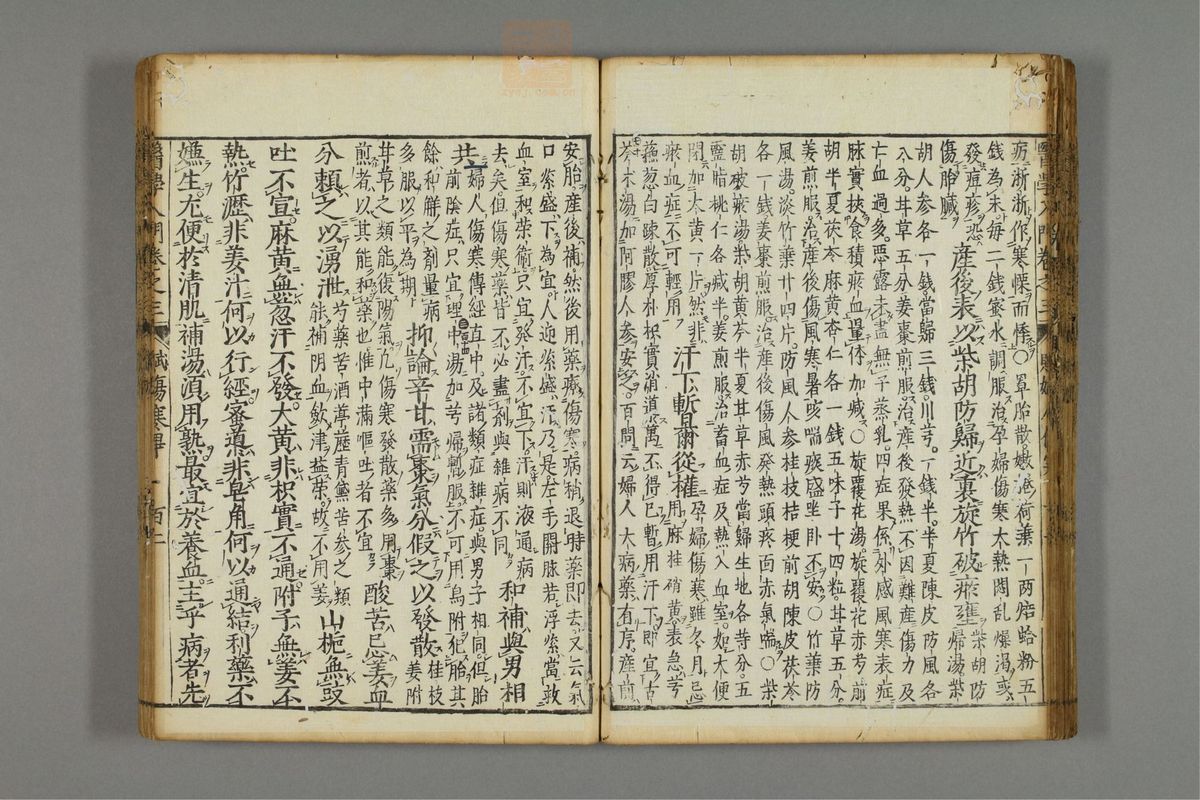 疬浙浙作寒慄而悸○罩胎散嫩卷荷葉一両焙蛤粉五
錢為末毎二錢蜜水調服治孕婦傷寒大熱悶乱燥渇或
發痘疹恐
傷胎臓 産後表以柴胡防歸近裏旋竹破瘀壅 柴胡防
歸湯柴
胡人参各一錢當歸三錢川芎一錢半半夏陳皮防風各
八分甘草五分姜棗煎服治産後發熱不因難産傷力及
亡血過多惡露未盡無子蒸乳四症果係外感風寒表症
脉實挟食積瘀血量体加減○旋覆花湯旋覆花赤芍前
胡半夏茯苓麻黄杏仁各一錢五味子十四粒甘草五分
姜煎服治産後傷風寒暑咳喘痰盛坐卧不安○竹葉防
風湯淡竹葉廿四片防風人参桂枝桔梗前胡陳皮茯苓
各一錢姜棗煎服治産後傷風發熱頭疼面赤氣喘○柴
胡破瘀湯柴胡黄芩半夏甘草赤芍當歸生地各等分五
靈脂桃仁各减半姜煎服治畜血症及熱入血室如大便
閉加大黄一片然非
瘀血症不可輕用 汗下暫爾從權 孕婦傷寒雖冬月忌
用麻桂硝黄表急芎
蘇葱白陳散厚朴枳實消道萬不得已暫用汗下即宜
芩术湯加阿膠人参安之百問云婦人大病藥有序産前
安胎産後補然後用藥療傷寒病稍退時藥即去又云氣
口緊盛下為宜人迎緊盛汗乃是左手關脉若浮緊當救
血室和榮衛只宜発汗不宜下汗則液通病
去矣但傷寒藥皆不必盡剤與雜病不同 和補與男相
共 婦人傷寒傳經直中及諸類症雜症與男子相同但胎
前陰症只宜理中湯加芎歸暫服不可用烏附犯胎其
餘和觧之剤量病
多服以平為期 抑論辛甘需棗氣分假之以發散 桂枝
姜附
甘草之類能復陽氣凡傷寒發散藥多用棗
煎者以其能和藥也惟中滿嘔吐者不宜 酸苦忌姜血
分頼之以湧泄 芍藥苦酒葶藶青黛苦参之類
能補阴血歛津益榮故不用姜 山梔無豉
吐不宣麻黄無葱汗不發大黄非枳實不通附子無姜不
熱竹瀝非姜汁何以行經蜜導非皂角何以通結利藥不
嫌生尤便於清肌補湯湏用熟最宜於養血主乎病者先
醫學入門卷之三 賦傷寒
百二